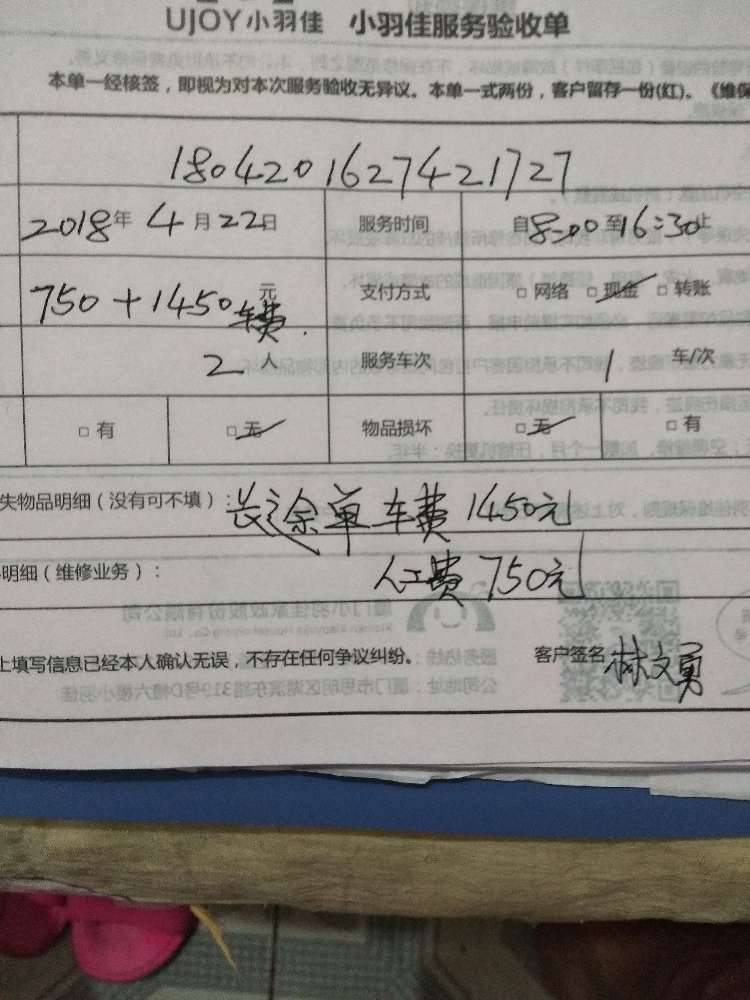 UJOY小羽佳 小羽佳服务验收单
本单一经核签，即视为对本次服务验收无异议。本单一式两份，客户留存一份(红)。《维保
180420162742172７
2018年 4月22日 服务时间 自8:00至16:30止
750+1450元车费. 支付方式 □ 网络 □ 现金 □ 转账
2人 服务车次 1 车/次
□ 有 □ 无 物品损坏 □ 无 □ 有
失物品明细（没有可不填）：长途余单 车费1450元
明细（维修业务）： 人工费750元
上填写信息已经本人确认无误，不存在任何争议纠纷。 客户签名 林文勇